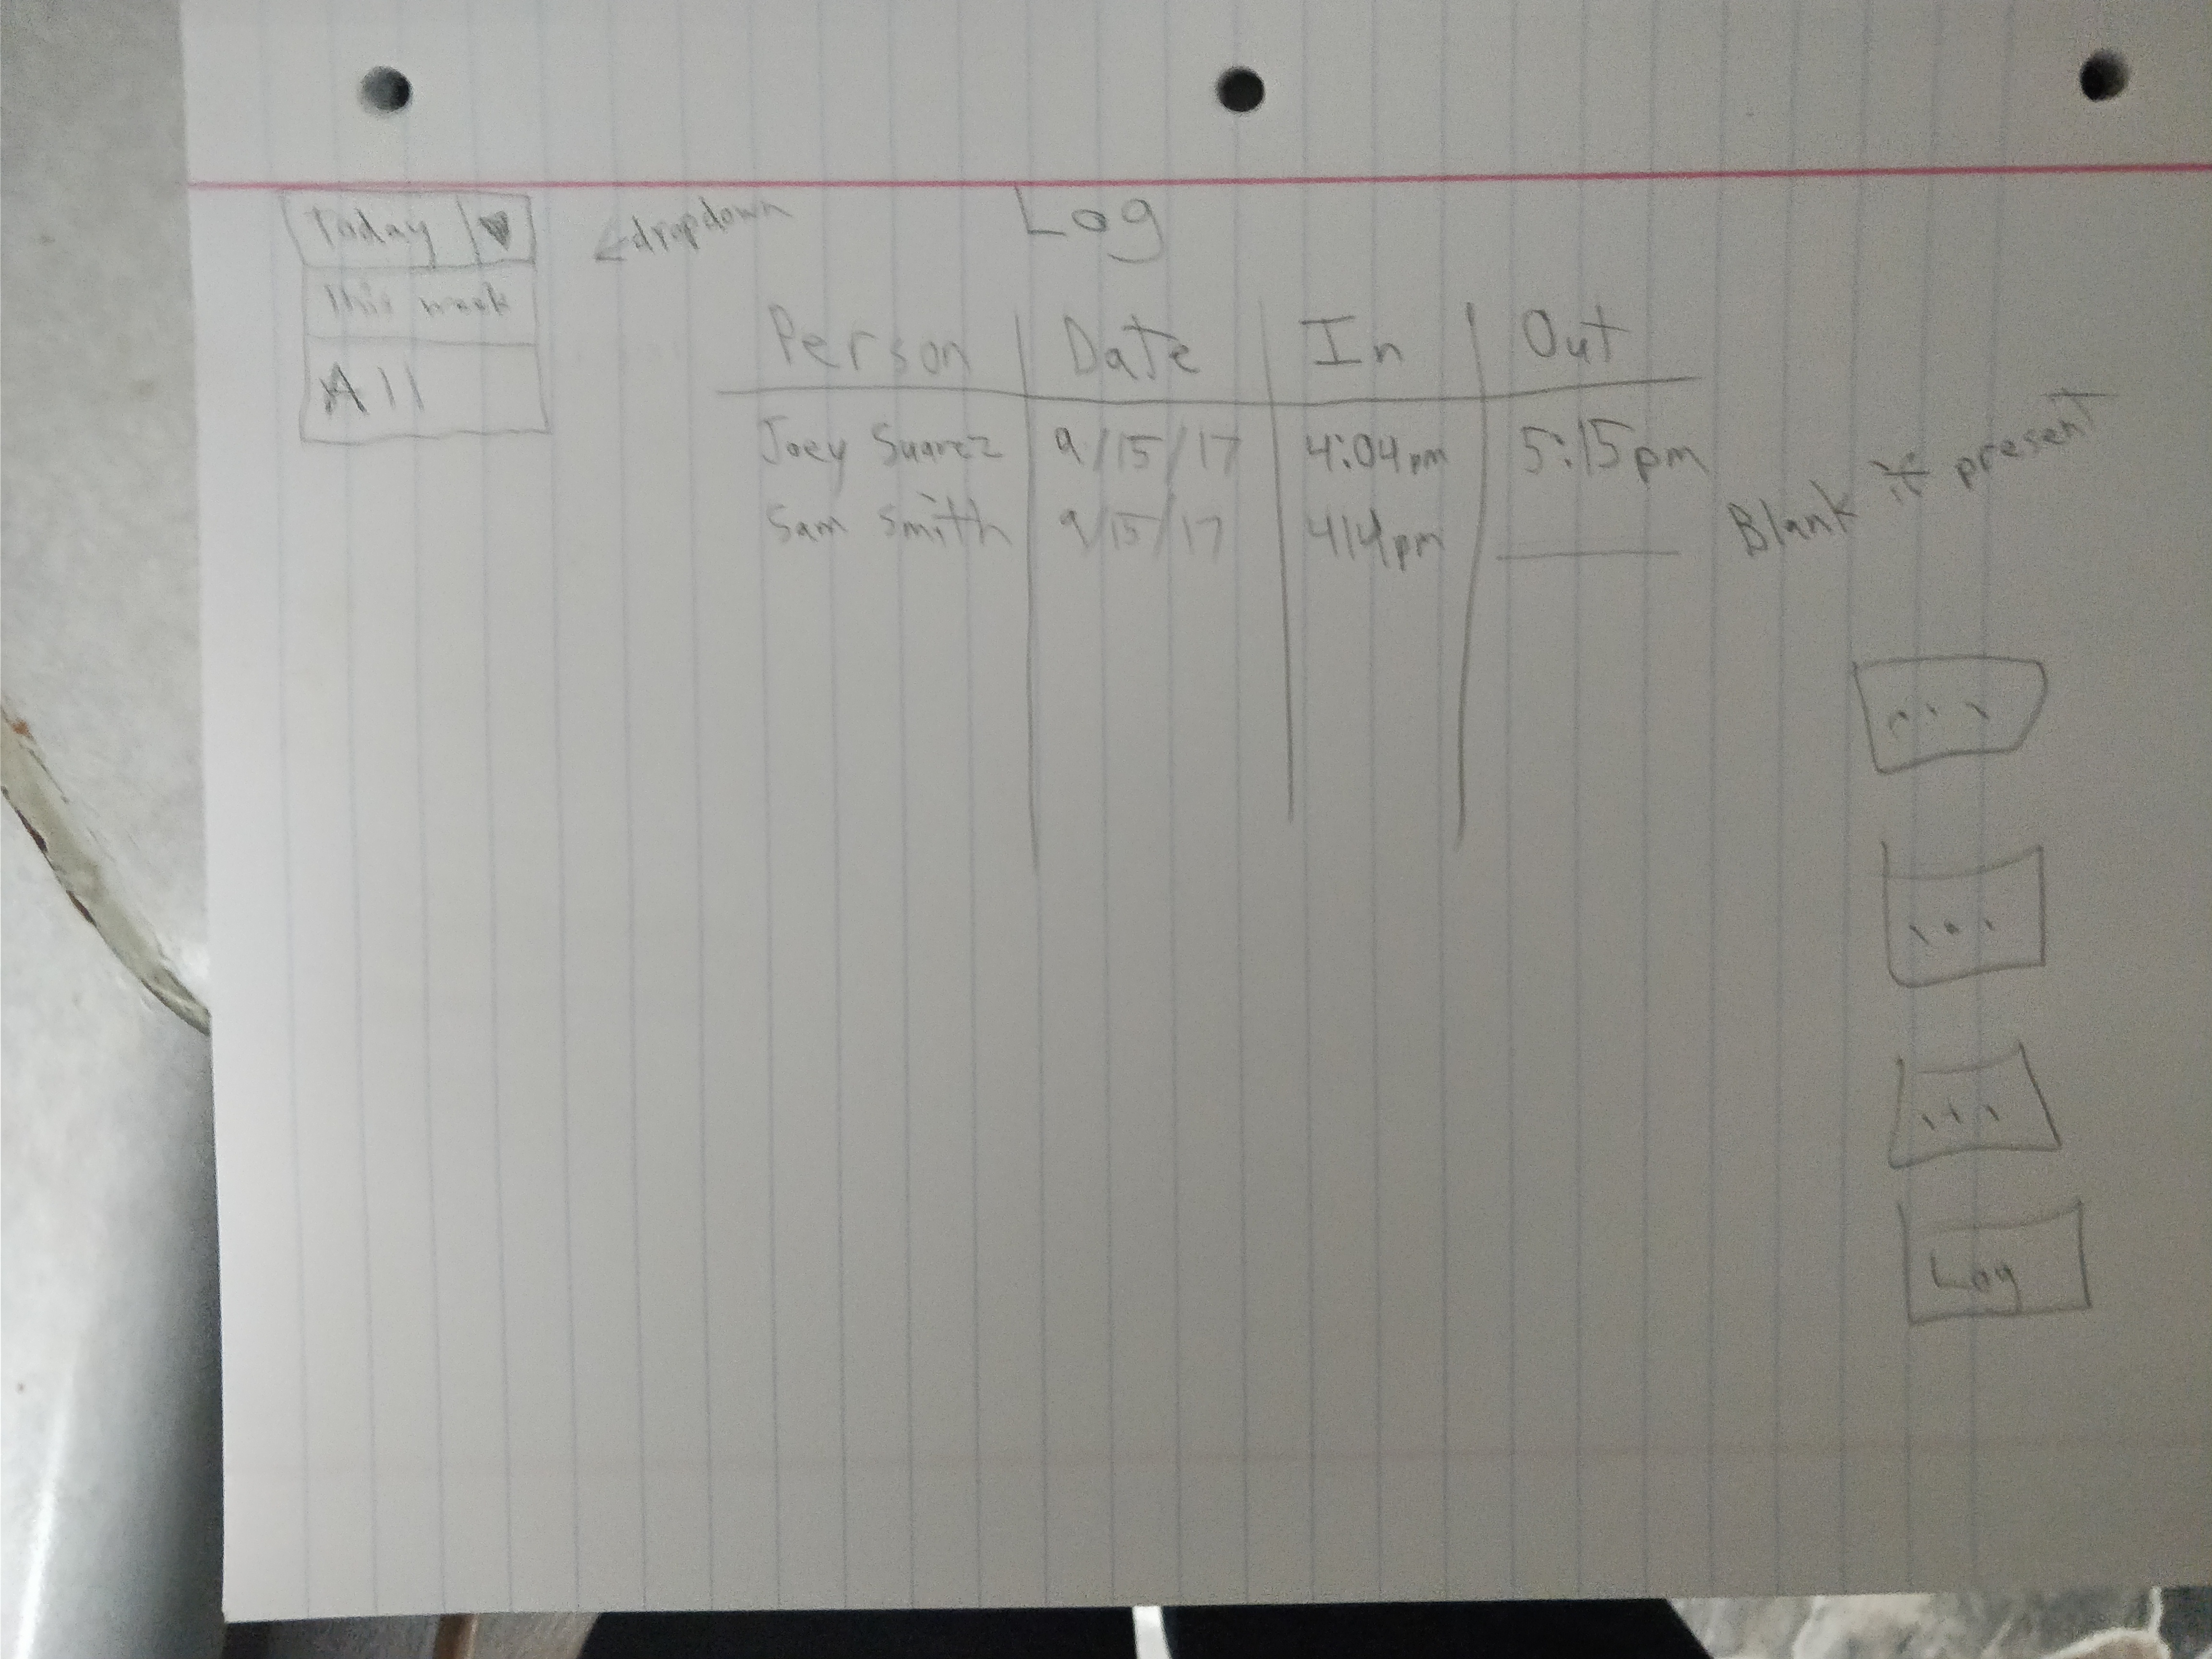 Today
This week
All
dropdown
Log
Person Date In Out
Joey Suarez 9/15/17 4:04pm 5:15pm
Sam Smith 9/15/17 414pm
Blank if present
...
...
...
Log